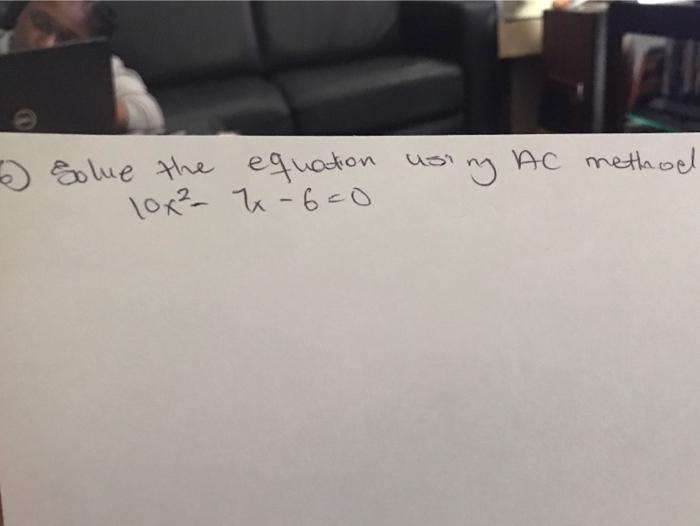 6) Solve the equation using AC method
10x² - 7x - 6 = 0